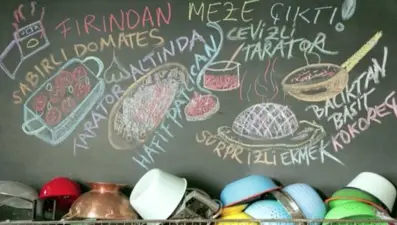 FIRINDAN MEZE ÇIKTI!
SABIRLI DOMATES
TARATOR ALTINDA
HAFİF PATLICAN
CEVİZLİ
TARATOR
SÜRPRİZLİ EKMEK
BACIKTAN
BASİT
KOKOREÇ